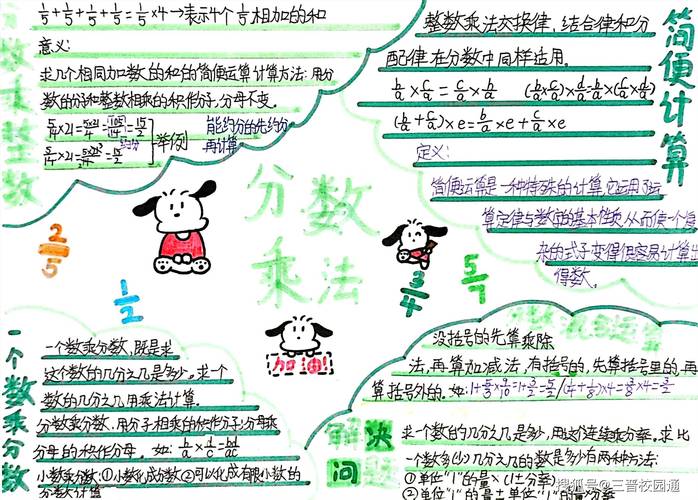 分数乘整数
1/5+1/5+1/5+1/5=1/5×4→表示4个1/5相加的和
意义:
求几个相同加数的和的简便运算计算方法:用分
数的分子和整数相乘的积作分子,分母不变。
5/14×21=5×21/14=105/14=15/2
5/14×21=5×21/14=15/2
举例
能约分的先约分
再计算
简便计算
整数乘法交换律、结合律和分
配律在分数中同样适用。
b/a×c/a=c/a×b/a
(b/a+c/a)×e=b/a×e+c/a×e
定义:
简便运算是一种特殊的计算,它运用了运
算定律与数字的基本性质,从而使一个复
杂的式子变得很容易计算出
得数。
分数
乘法
2/5
1/2
3/4
5/7
加油!
一个数乘分数
一个数乘分数,既是求
这个数的几分之几是多少。求一个
数的几分之几用乘法计算。
分数乘分数,用分子相乘的积作分子,分母乘
分母的积作分母。如:b/a×d/c=bd/ac
小数乘分数:①小数化成分数②可以化成有限小数的
分数计算
没括号的先算乘除
法,再算加减法,有括号的,先算括号里的,再
算括号外的。如:
解决
问题
求一个数的几分之几是多少,用这个数连续乘分率。求比
一个数多(少)几分之几的数是多少有两种方法:
①单位"1"的量×(1±分率)
②单位"1"的量±单位"1"的量×分率
搜狐号@三晋校园通